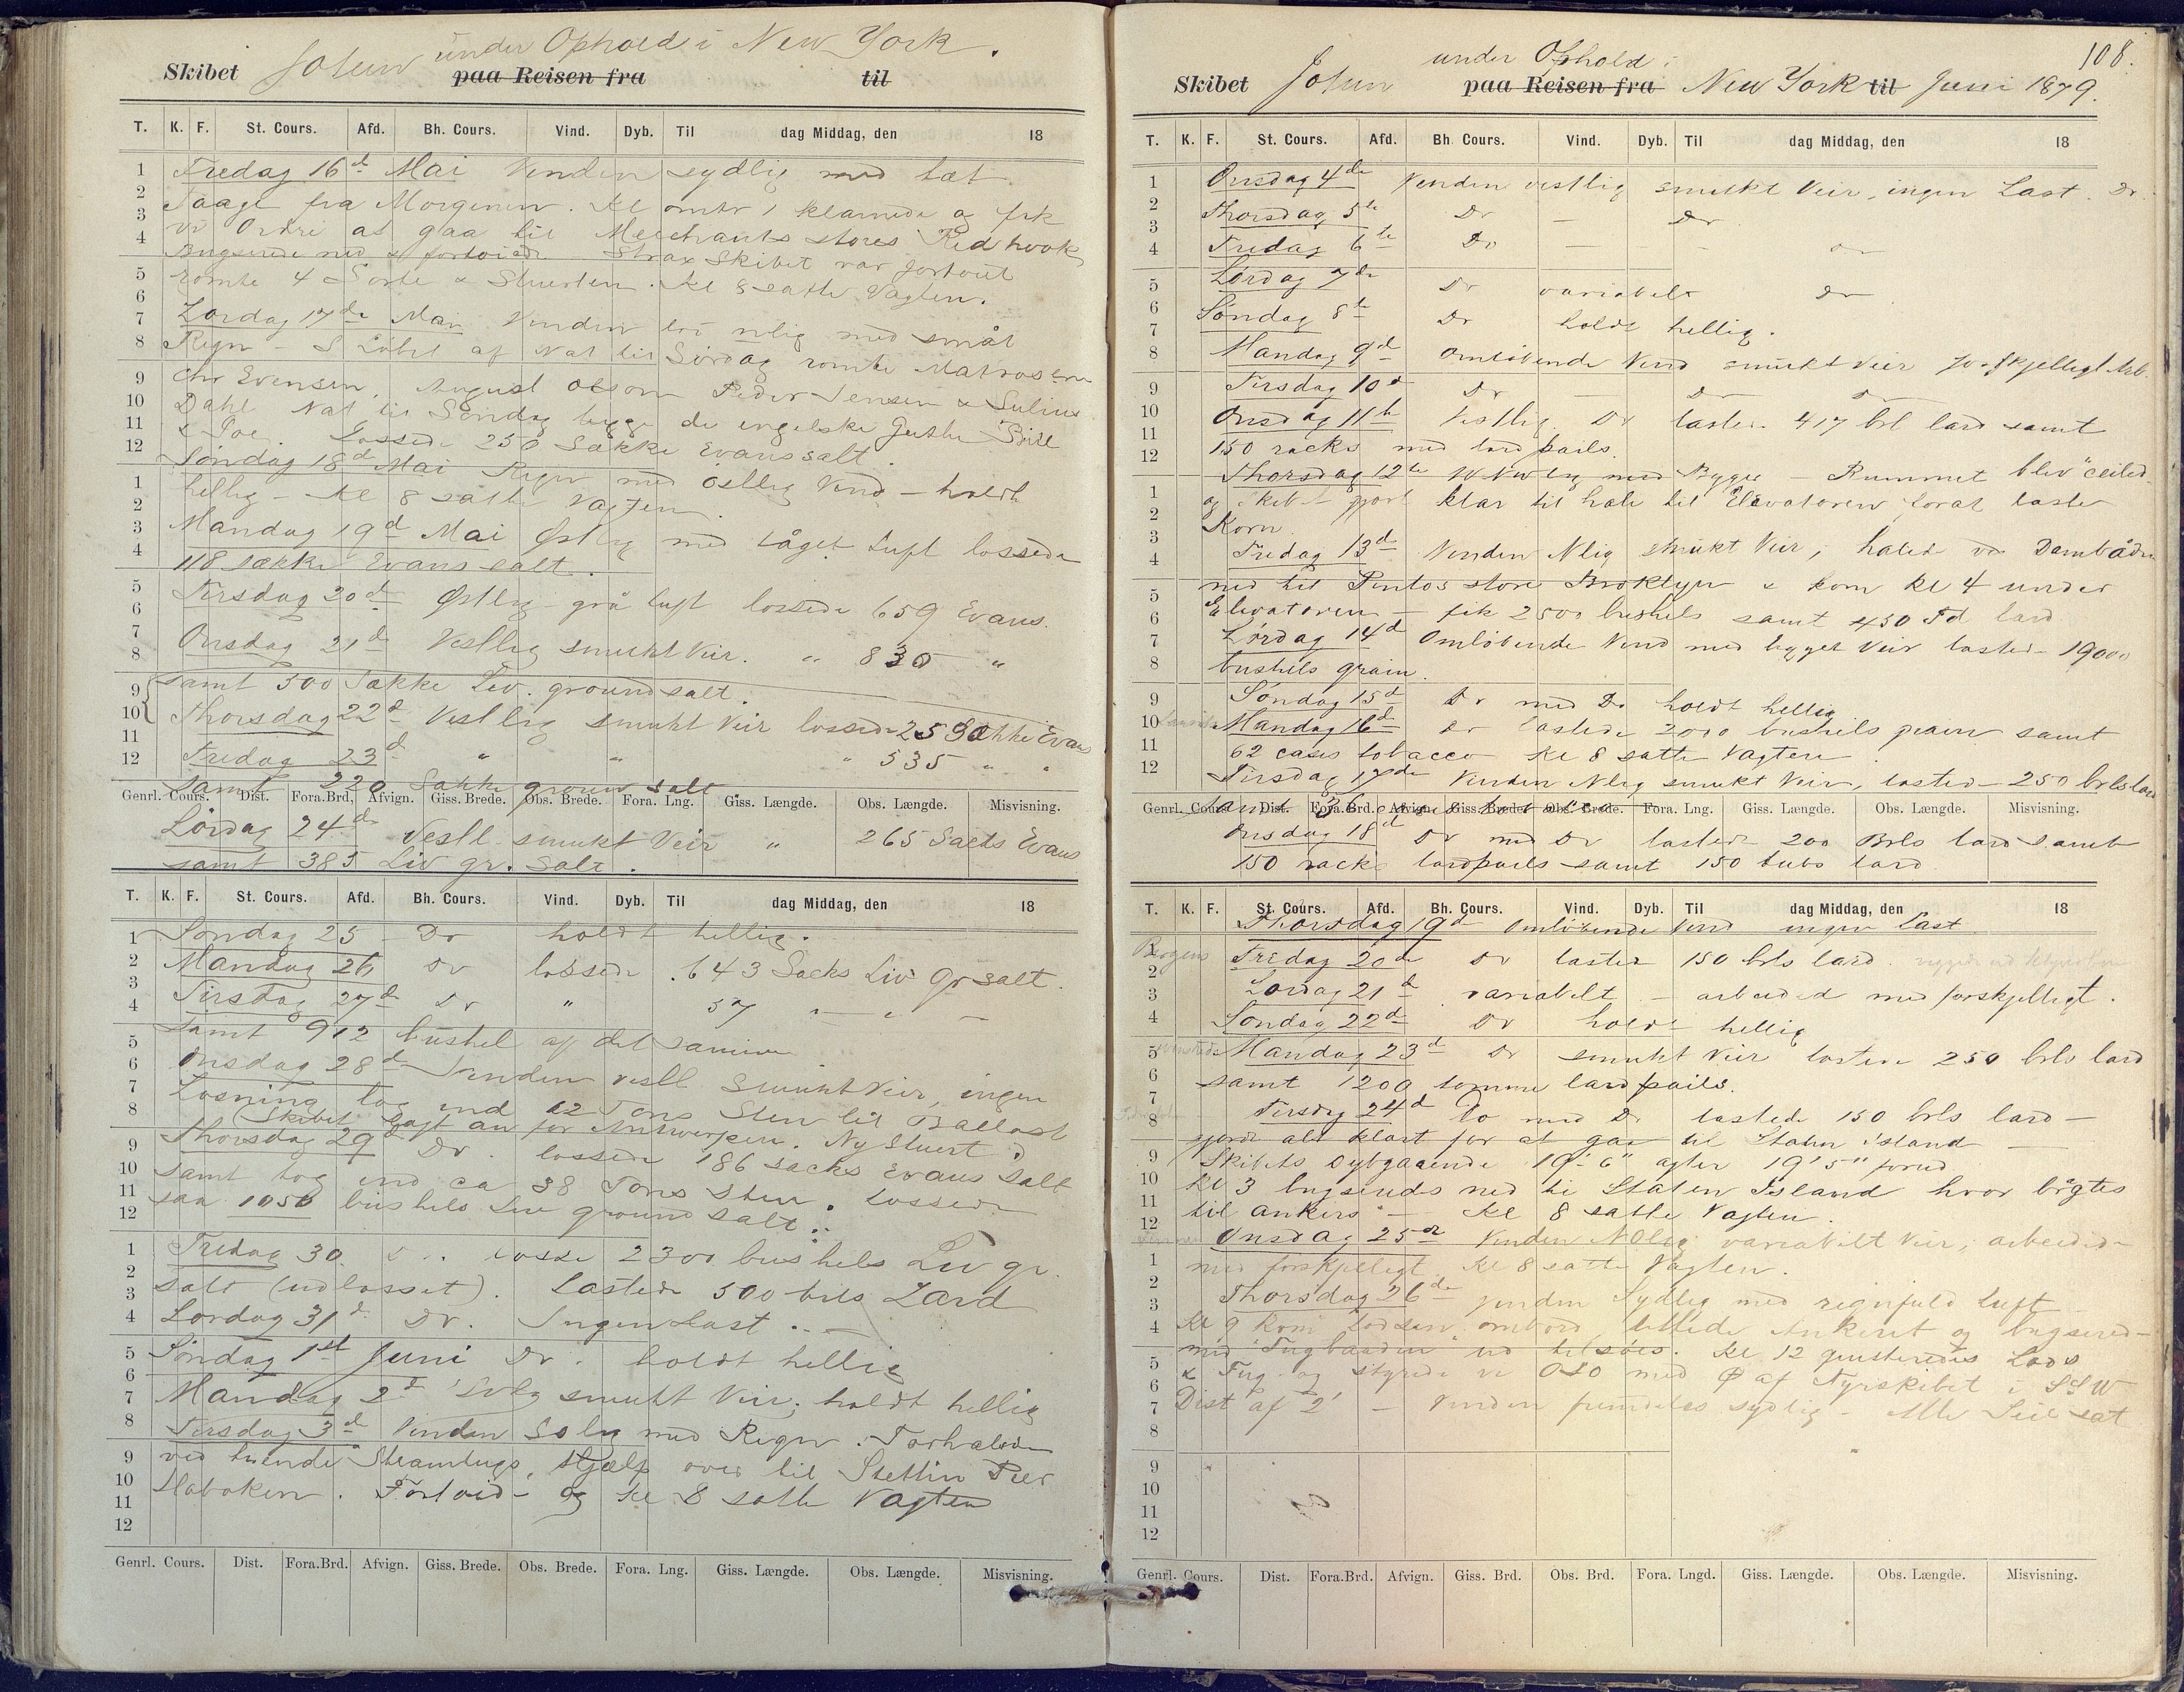 under Ophold i New York.
Skibet Jotun paa Reisen fra til
T. K. F. St. Cours. Afd. Bh. Cours. Vind. Dyb. Til dag Middag, den 18
Fredag 16d Mai Vinden sydlig med tæt
Taage fra Morgenen. Kl omtr 1 klarnede og fik
vi Ordre at gaa til Merchants stores Red hook
Bugserede ned & fortøiede. Strax Skibet var fortøiet
römte 4 & Stuerten. Kl 8 satte Vagten.
Lördag 17de Mai Vinden nlig med småt
Regn - I Löbet af Nat til Sördag römte Matroserne
Chr Evensen, August Olson Peder Jensen & Julius
Dahl Nat til Söndag begge de engelske Gutter Bill
& Joe. Lossede 250 Sække Evans salt.
Söndag 18d Mai Regn med östlig Vind - holdt
hellig - Kl 8 satte Vagten.
Mandag 19d Mai Østlig med tåget Luft lossede
118 sække Evans salt.
Tirsdag 20d Østlig grå luft lossede 659 Evans.
Onsdag 21d Vestlig smukt Veir. " 830 "
samt 500 Sække Liv. ground salt.
Thorsdag 22d Vestlig smukt Veir lossede 25 Evans
Fredag 23d " " " 535 " "
samt 220 Sække groun salt
Genrl. Cours. Dist. Fora.Brd. Afvign. Giss. Brede. Obs. Brede. Fora. Lng. Giss. Længde. Obs. Længde. Misvisning.
Lördag 24d Vestl. smukt Veir " 265 Sacks Evans
samt 385 Liv gr. Salt.
T. K. F. St. Cours. Afd. Bh. Cours. Vind. Dyb. Til dag Middag, den 18
Söndag 25 - Do holdt hellig.
Mandag 26 Do lossede 643 Sacks Liv Gr salt.
Tirsdag 27d Do " 57 - " -
samt 912 bushel af det samme
Onsdag 28d Vinden vestl Smukt Veir, ingen
Losning tog ind 62 Tons Sten til Ballast
(Skibet Sagt an for Antwerpen. Ny Stuert)
Thorsdag 29d Do. lossede 186 sacks Evans Salt
samt tog ind ca 38 Tons Sten. Lossede
saa 1050 bushels Liv ground Salt.
Fredag 30. losse 2300 bushels Liv gr
salt (udlosset). Lastede 500 brls Lard
Lördag 31d Do. Ingen Last. -
Söndag 1st Juni Do. holdt hellig
Mandag 2d smukt Veir, holdt hellig
Tirsdag 3d Vinden med Regn. Forhalede
ved tvende Steamtugs hjælp over til Stettin Pier
Hoboken. Fortöiede og Kl 8 satte Vagten
Genrl. Cours. Dist. Fora.Brd. Afvign. Giss. Brede. Obs. Brede. Fora. Lng. Giss. Længde. Obs. Længde. Misvisning.
108.
under Ophold i
Skibet Jotun paa Reisen fra New York til Juni 1879.
T. K. F. St. Cours. Afd. Bh. Cours. Vind. Dyb. Til dag Middag, den 18
Onsdag 4de Vinden vestlig smukt Veir, ingen Last. Do
Thorsdag 5te Do - Do
Fredag 6te Do - - Do
Lördag 7de Do variabelt Do
Söndag 8de Do holdt hellig.
Mandag 9d Omlöbende Vind smukt Veir forskjelligt Arb.
Tirsdag 10d Do - Do Do
Onsdag 11te Vestlig. Do laster 417 brl lard samt
150 racks med lard pails.
Thorsdag 12te med Bygger - Rummet blev "ceiled"
og Skibet gjort klar til hale til Elevatoren forat laste
Korn.
Fredag 13d Vinden Nlig smukt Veir, halede ved Dampbåden
ned til Pintos store Broklyn & kom Kl 4 under
Elevatoren - fik 2500 bushels samt 450 lard
Lördag 14d Omlöbende Vind med bygget Veir lastede 19000
bushels grain.
Söndag 15d Do med Do holdt hellig
Mandag 16d Do lastede 2000 bushels grain samt
62 cases tobacco Kl 8 satte Vagten.
Tirsdag 17de Vinden Nlig smukt Veir, lastede 250 brls lard
Genrl. Cours. Dist. Fora.Brd. Afvign. Giss. Brede. Obs. Brede. Fora. Lng. Giss. Længde. Obs. Længde. Misvisning.
Onsdag 18d Do med Do lastede 200 Brls lard samt
150 racks lardpails samt 150 tubs lard
T. K. F. St. Cours. Afd. Bh. Cours. Vind. Dyb. Til dag Middag, den 18
Thorsdag 19d Omlöbende Vind ingen last
Fredag 20de Do laster 150 brls lard.
Lördag 21d variabelt - arbeided med forskjelligt.
Söndag 22d Do holdt hellig
Mandag 23d Do smukt Veir lastede 250 brls lard
samt 1200 tomme lardpails.
Tirsdag 24d Do med Do lastede 150 brls lard -
gjorde alt klart for at gaa til Staten island
Skibets Dybgaaende 19' 6" agter 19' 5" forud
Kl 3 bugseredes ned til Staten Island hvor bragtes
til ankers - Kl 8 satte Vagten.
Onsdag 25de Vinden NOlig variabelt Veir, arbeidede
med forskjelligt Kl 8 satte Vagten.
Thorsdag 26de Vinden Sydlig med regnfuld Luft
Kl 9 kom Lodsen ombord, lettede Ankeret og bugserede
med "Tugbaaden" ud tilsöes. Kl 12 qvitteredes Lods
& Tug og styrede vi OSO med af Fyrskibet i SSW
Dist af 2' - Vinden fremdeles sydlig - Alle Seil sat
Genrl. Cours. Dist. Fora.Brd. Afvign. Giss. Brd. Obs. Brd. Fora. Lngd. Giss. Længde. Obs. Længde. Misvisning.